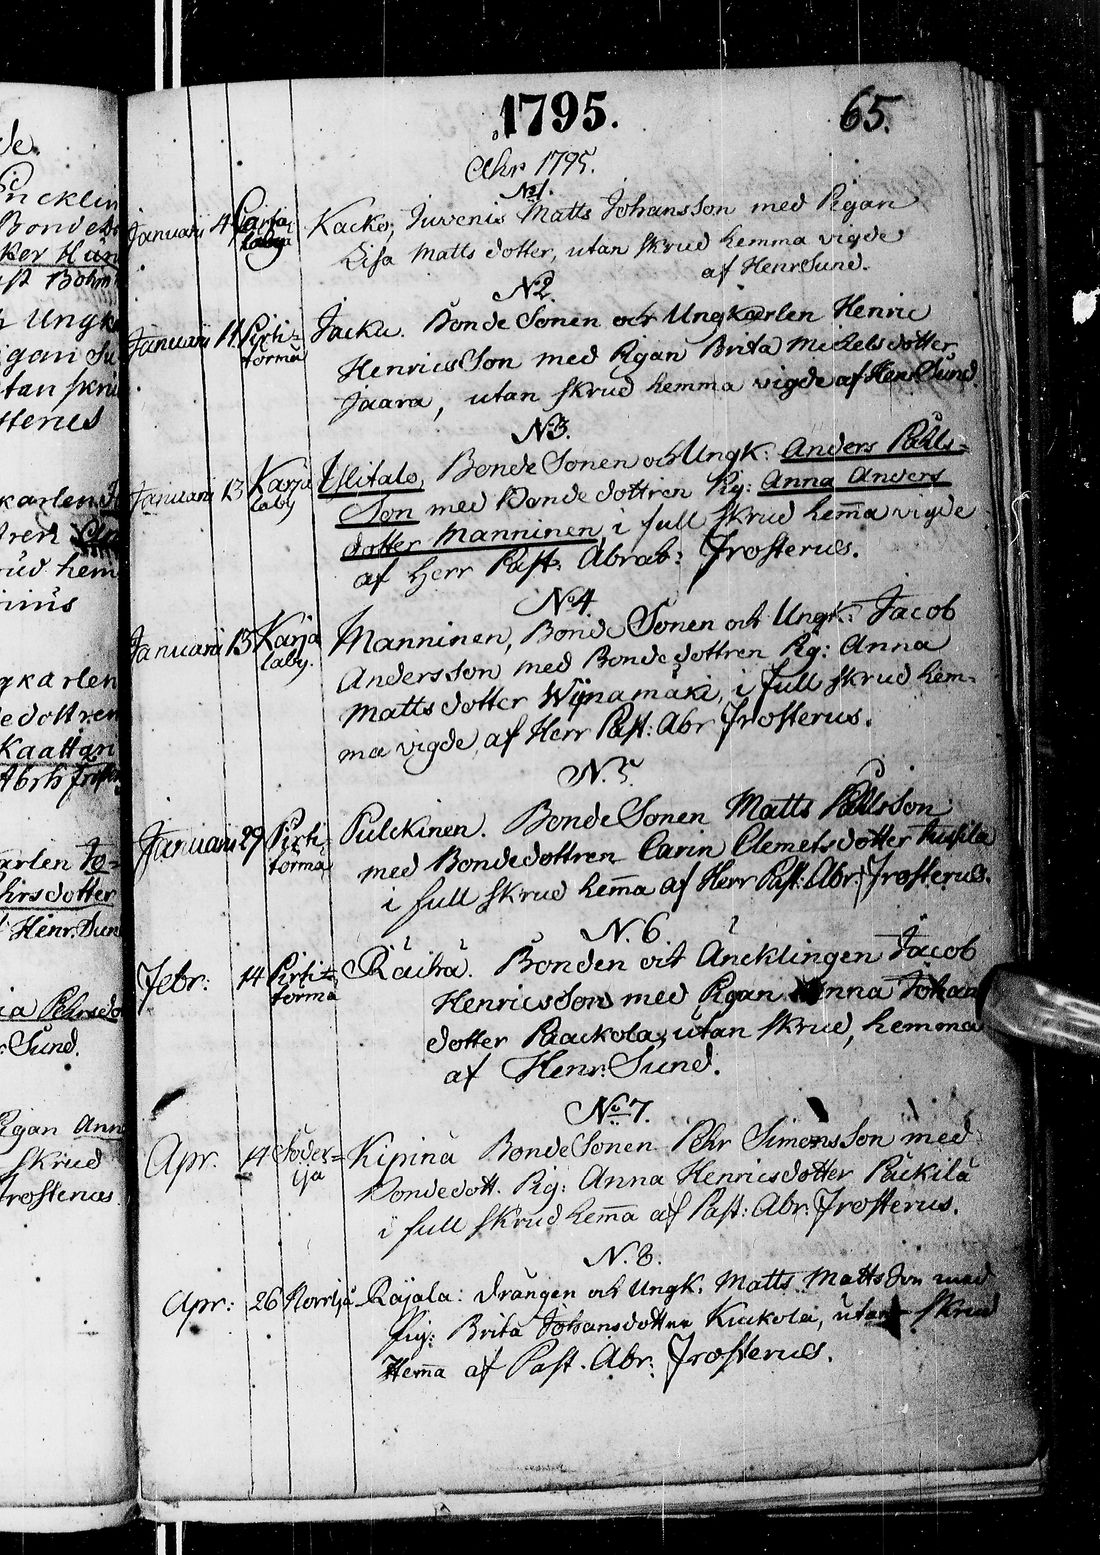 1795.
65.
Ahr 1795.
N1.
Januarii 4 Karja laby Kacko, Juvenis Matts Johansson med Pigan
Lisa Matts dotter, utan skrud hemma vigde
af Henr Sund.
N2.
Januarii 11 Pirti= torma Jacku. Bonde Sonen och Ungkarlen Henric
Henrics Son med Pigan Brita Michelsdotter
Jaara, utan skrud hemma vigde af Henr Sund
N3.
Januarii 13 Karja laby Ylitalo, Bonde Sonen och Ungk: Anders Påhls=
Son med Bonde dottren Pig: Anna Anders
dotter Manninen, i full skrud hem̄a vigde
af Herr Past: Abrah: Frosterus.
No4.
Januarii 13 Karja laby. Manninen, Bonde Sonen och Ungk: Jacob
Andersson med Bonde dottren Pig: Anna
Matts dotter Wijnamäki, i full skrud hem=
ma vigde af Herr Past: Abr Frosterus.
N. 5
Januarii 29 Pirti= torma Pulckinen. Bonde Sonen Matts PåhlsSon
med Bondedottren Carin Clemetsdotter
i full skrud hem̄a af Herr Past: Abr: Frosterus.
N. 6
Febr: 14 Pirti= torma Räihä. Bonden och Äncklingen Jacob
Henrics Son med Pigan Anna Johans
dotter Raackola, utan skrud, hemma
af Henr: Sund.
No 7.
Apr. 14 Söder= ijä Kipinä Bonde Sonen Pehr Simons Son med
Bondedott. Pig: Anna Henricsdotter Päckilä
i full skrud hem̄a af Past: Abr: Frosterus.
N. 8.
Apr: 26 Norrijä Rajala: drängen och Ungk. Matts Matts Son med
Pig: Brita Johansdotter Kuckola, utan skrud
Hem̄a af Past. Abr: Frosterus.